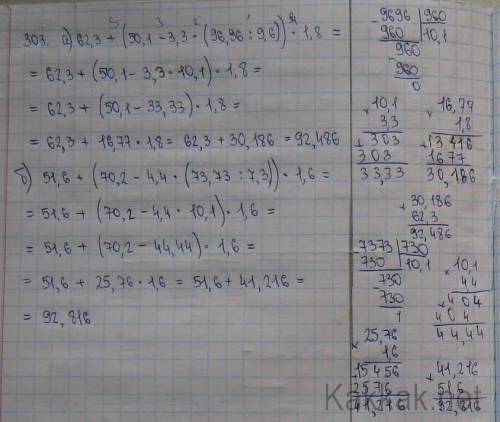 5 3 2 1 4
303. а) 62,3 + (50,1 - 3,3 · (96,96 : 9,6)) · 1,8 =
= 62,3 + (50,1 - 3,3 · 10,1) · 1,8 =
= 62,3 + (50,1 - 33,33) · 1,8 =
= 62,3 + 16,77 · 1,8 = 62,3 + 30,186 = 92,486
б) 51,6 + (70,2 - 4,4 · (73,73 : 7,3)) · 1,6 =
= 51,6 + (70,2 - 4,4 · 10,1) · 1,6 =
= 51,6 + (70,2 - 44,44) · 1,6 =
= 51,6 + 25,76 · 1,6 = 51,6 + 41,216 =
= 92,816
- 9696 | 960
960 | 10,1
- 960
960
0
× 10,1 × 16,77
3,3 1,8
+ 303 + 13416
303 1677
33,33 30,186
+ 30,186
62,3
92,486
- 7373 | 730
730 | 10,1
- 730
730
1
× 10,1
44
+ 404
404
44,44
× 25,76
1,6
+ 15456
2576
41,216
+ 41,216
516
92,816